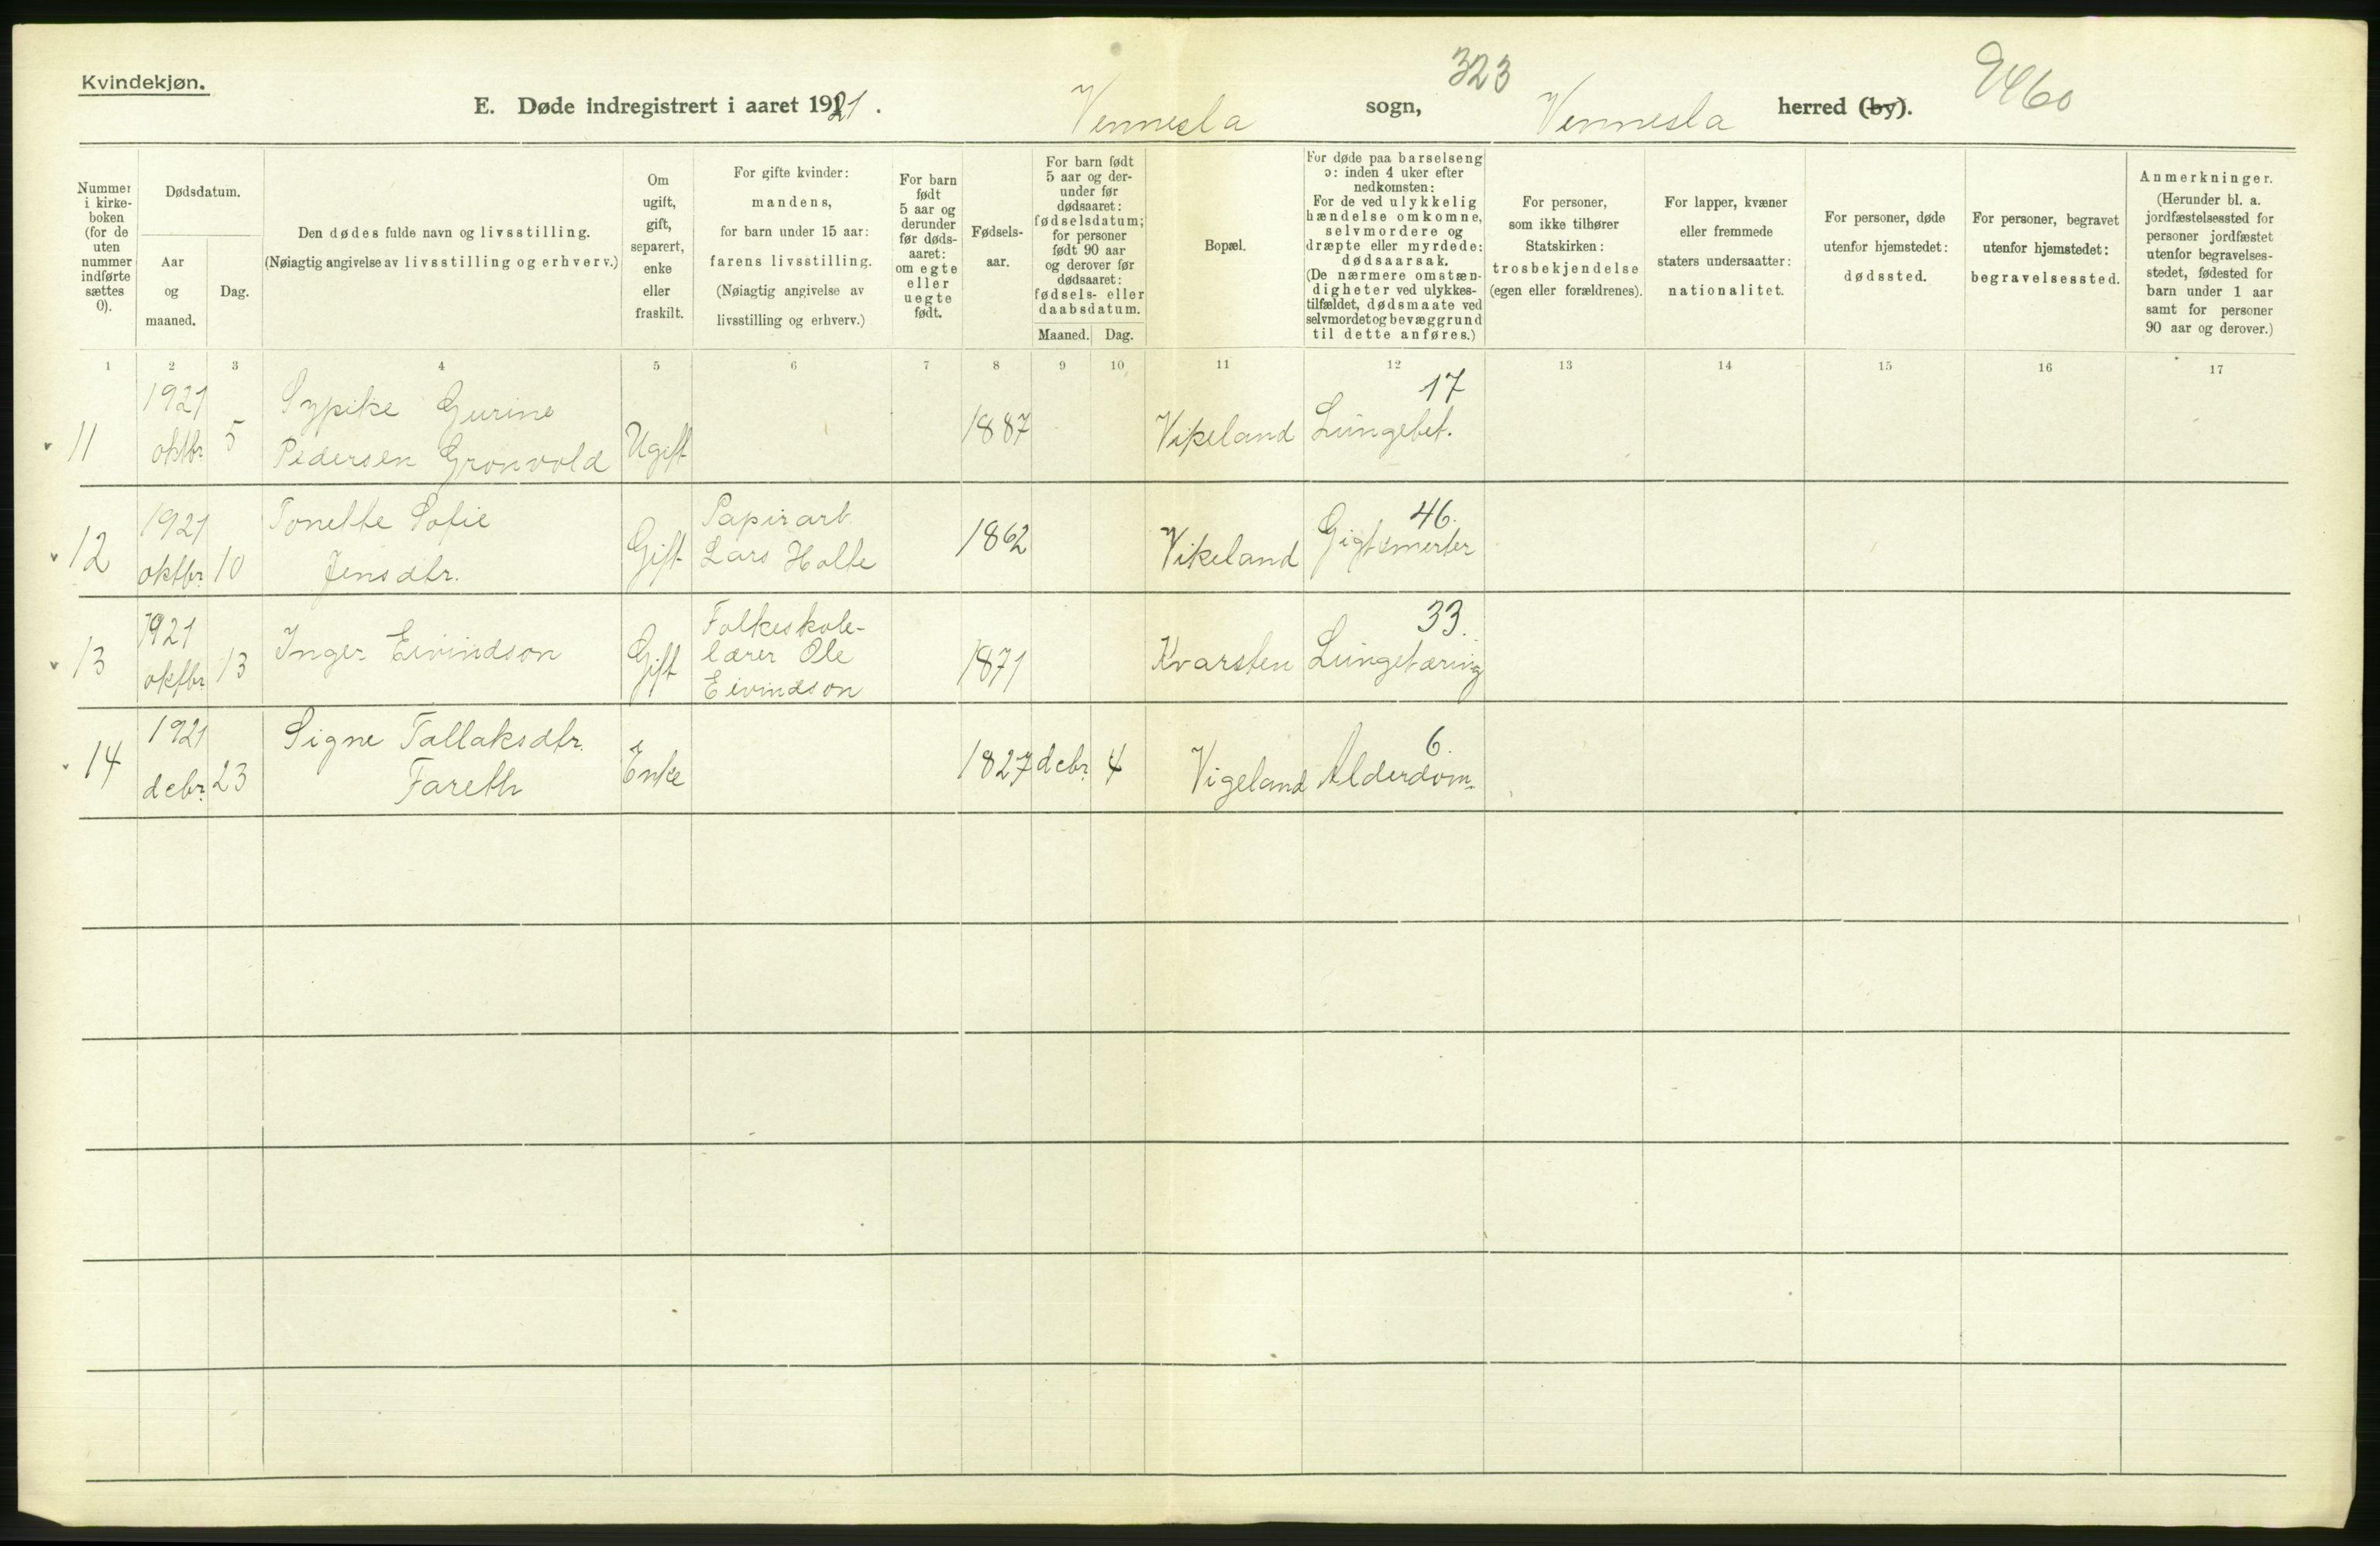 Kvindekjøn.
323
9460
E. Døde indregistrert i aaret 1921. Vennesla sogn, Vennesla herred (by).
Nummer i kirke-boken (for de uten nummer indførte sættes 0).
Dødsdatum.
Aar og maaned.
Dag.
Den dødes fulde navn og livsstilling.
(Nøiagtig angivelse av livsstilling og erhverv.)
Om ugift, gift, separert, enke eller fraskilt.
For gifte kvinder:
mandens,
for barn under 15 aar:
farens livsstilling.
(Nøiagtig angivelse av
livsstilling og erhverv.)
For barn født 5 aar og derunder før døds-aaret: om egte eller uegte født.
Fødsels-aar.
For barn født 5 aar og der-under før dødsaaret: fødselsdatum; for personer født 90 aar og derover før dødsaaret: fødsels- eller daabsdatum.
Maaned. Dag.
Bopæl.
For døde paa barselseng ɔ: inden 4 uker efter nedkomsten:
For de ved ulykkelig hændelse omkomne, selvmordere og dræpte eller myrdede: dødsaarsak.
(De nærmere omstæn-digheter ved ulykkes-tilfældet, dødsmaate ved selvmordet og bevæggrund til dette anføres.)
For personer, som ikke tilhører Statskirken: trosbekjendelse (egen eller forældrenes).
For lapper, kvæner eller fremmede staters undersaatter: nationalitet.
For personer, døde utenfor hjemstedet: dødssted.
For personer, begravet utenfor hjemstedet: begravelsessted.
Anmerkninger.
(Herunder bl. a. jordfæstelsessted for personer jordfæstet utenfor begravelses-stedet, fødested for barn under 1 aar samt for personer 90 aar og derover.)
1 2 3 4 5 6 7 8 9 10 11 12 13 14 15 16 17
11 1921 oktbr. 5 Sypike Gurine Pedersen Gronvold Ugift 1887 Vikeland 17 Lungebet.
12 1921 oktbr. 10 Tonette Sofie Jensdtr. Gift Papirarb. Lars Holte 1862 Vikeland 46. Gigtsmerter
13 1921 oktbr 13 Inger Eivindson Gift Folkeskole-lærer Ole Eivindson 1871 Kvarsten 33. Lungetæring
14 1921 debr. 23 Signe Tallaksdtr. Fareth Enke 1827 debr. 4 Vigeland 6. Alderdom.